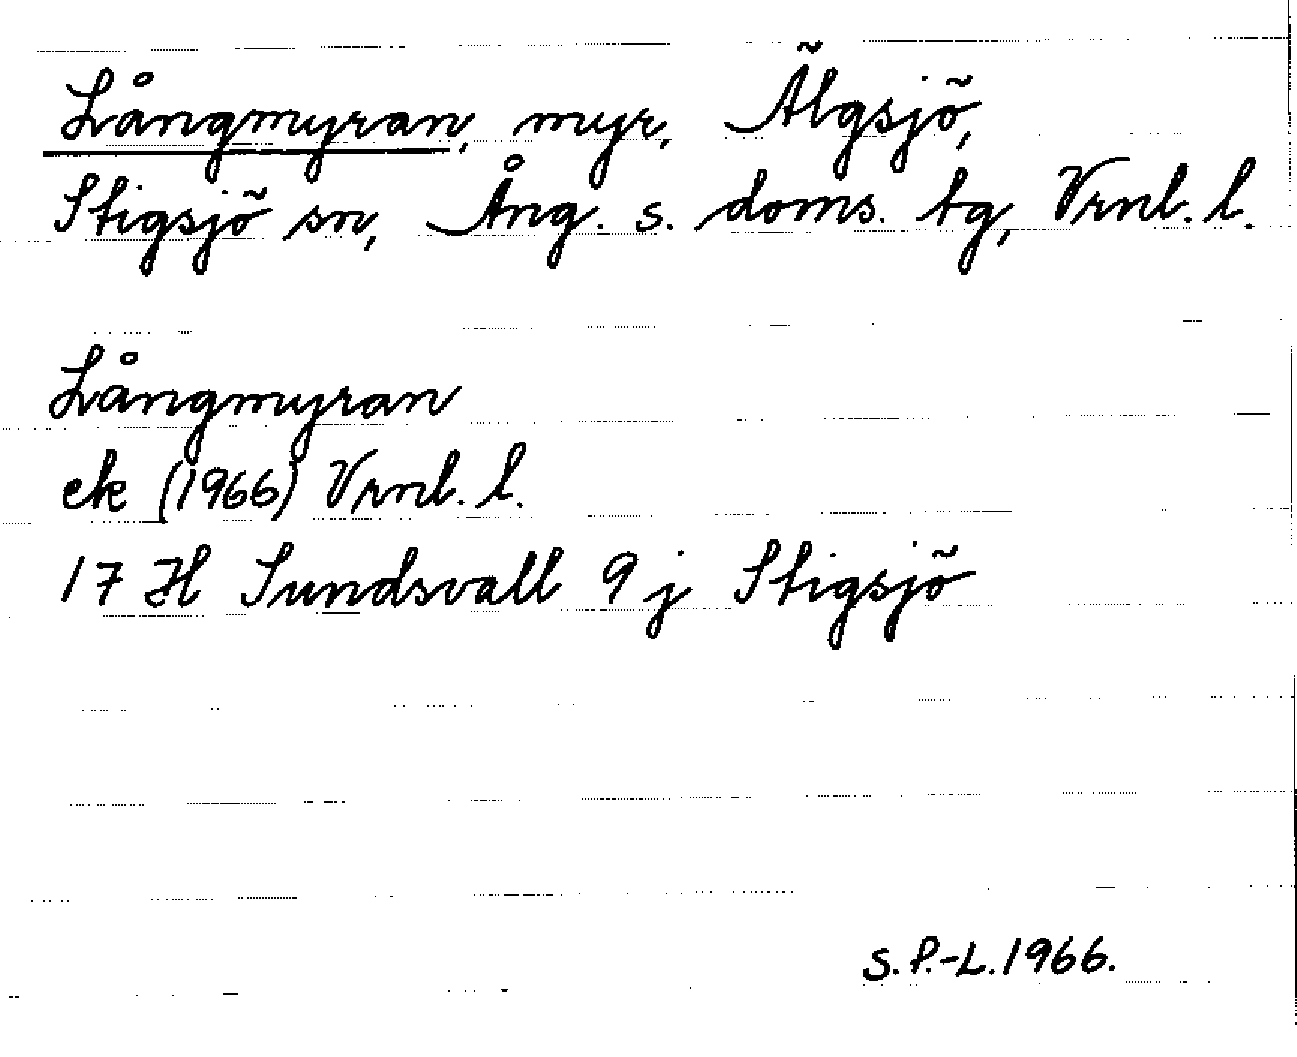 Långmyran, myr, Älgsjö,
Stigsjö sn, Ång. s. doms. tg, Vrnl. l.
Långmyran
ek (1966) Vrnl. l.
17 H Sundsvall 9 j Stigsjö
S. P.-L. 1966.